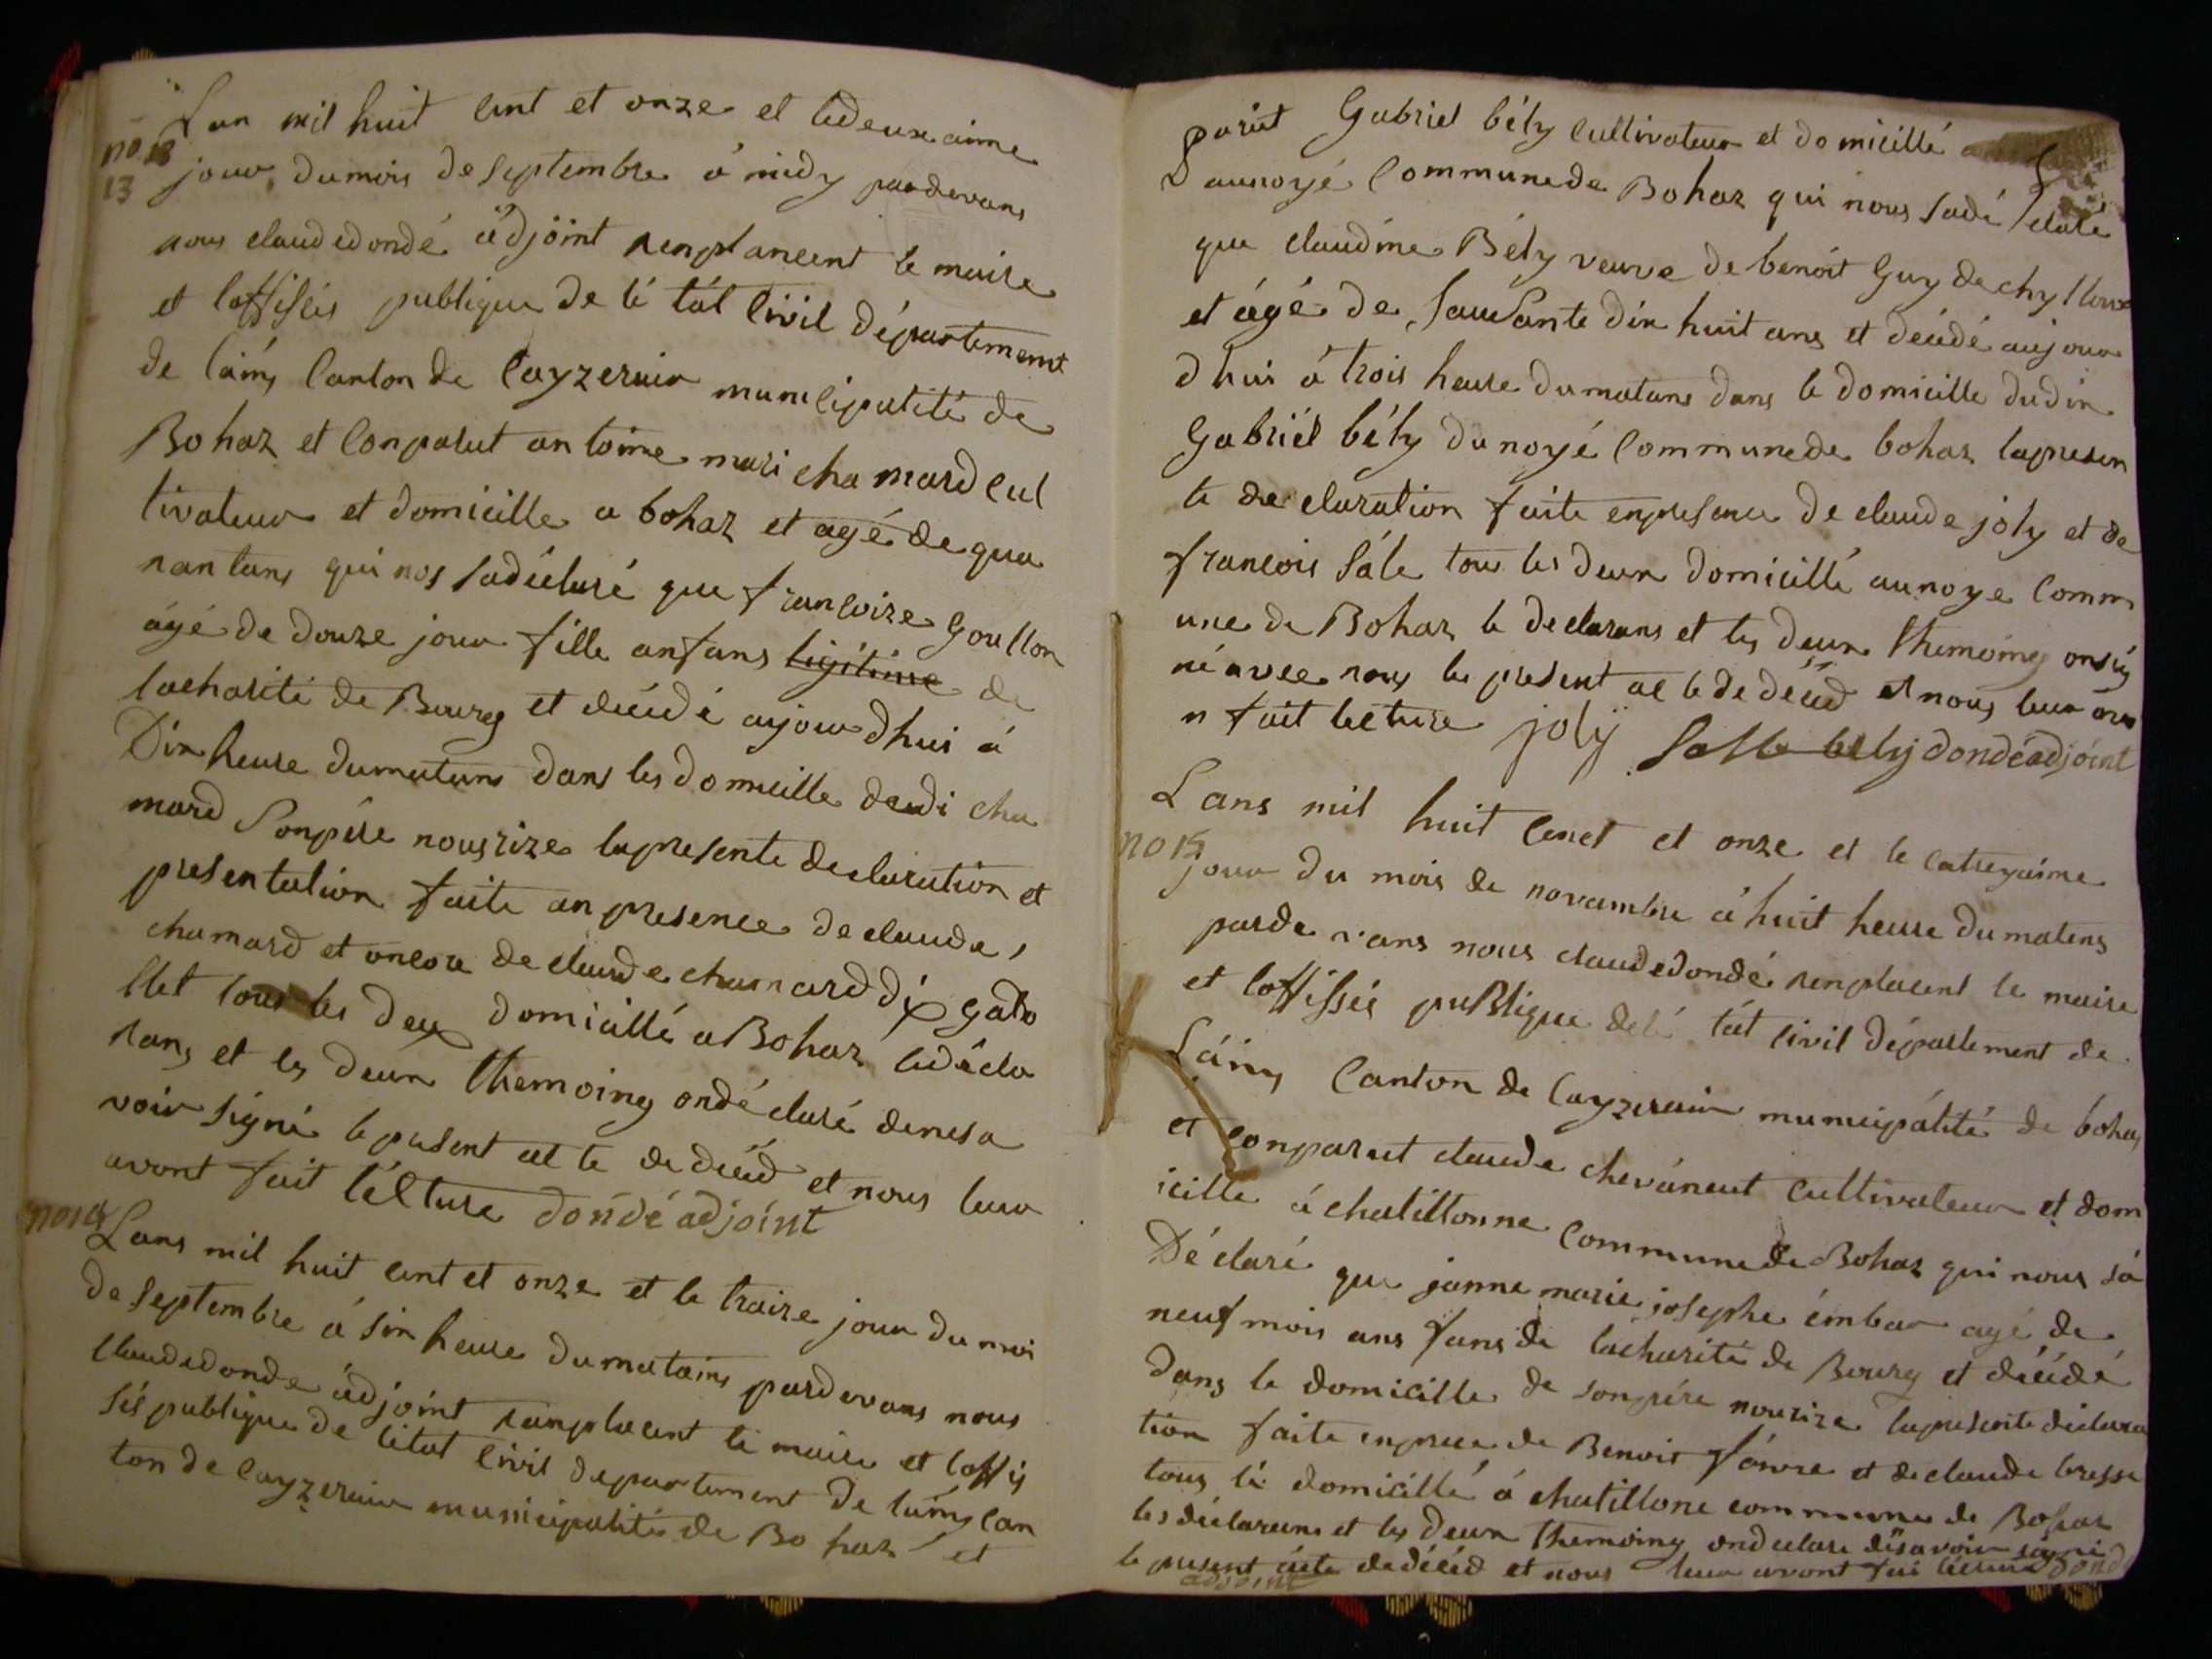 Lan mil huit cent et onze et ledeuxaime
no 13
13
jour dumois de septembre á midy pardevans
nous claudedondé adjoint renplancent le maire
et loffissiés publique de lé tát civil département
de láins canton de Cayzeriair municipalité de
Bohaz et conparut antoine mari chamard cul
tivateur et domicille a bohaz et agé de qua
rantans qui nos sadéclaré que francoise Goullon
ágé de douze jour fille anfans légitime de
lacharité de Bourg et décédé aujourdhui á
Dix heure dumatans dans les domicille dudi cha
mard sonpére nourize lapresente declaration et
presentation faite anpresence declaude
chamard et oncore de claude chamard di gado
llet tous les deux domicillé a Bohaz ledécla
rans et les deux themoing ondé claré denesa
voir signé lepresent acte de décéd et nous leur
avont fait lécture dondé adjoint
no 14
Lans mil huit cent et onze et le traize jour du moi
de septembre á six heure dumatains pardevans nous
claudedonde ádjoint ranplacent le maire et loffis
siés publique de létat civil departement de láins can
ton de cayzeriair municipalité de Bohaz et
parut Gabriel bély cultivateur et domicillé a
aunoyé Communede Bohaz qui nous sadé claré
que claudine Bély veuve de benoit Guy de
et ágé de sausante dix huit ans et décédé aujour
dhui á trois heure dumatans dans le domicille dudix
Gabriél bély dunoyé communede bohaz lapresen
te declaration faite enpresence de claude joly et de
francois sále tous les deux domicillé aunoye comm
une de Bohaz le declarans et les deux themoing onsig
né avec nous le present acte de décéd et nous leur avo
n fait lecture joly Salle bely dondéadjoint
Lans mil huit cenct et onze et le catreyaime
no 15
jour du mois de novambre á huit heure dumatens
parde vans nous claudedondé renplacent le maire
et loffissiés puBlique delé tát civil département de
Láins canton de Cayzeriair municipálité de bohaz
et conparut claude chevánent cultivateur et dom
icille á chatillonne commune de Bohaz qui nous sá
Déclaré que janne marie josephe émbar agé de
neuf mois ans fans de lacharité de Bourg et décédé
dans le domicille de sonpére nourize lapresente déclara
tion faite enprece de Benoit fáivre et declaude bresse
tous lé domicillé á chatillone commune de Bohaz
les déclarans et les deux themoing ondeclare
le present ácte dedécéd et nous leur avont fai lécture dond
adjoint